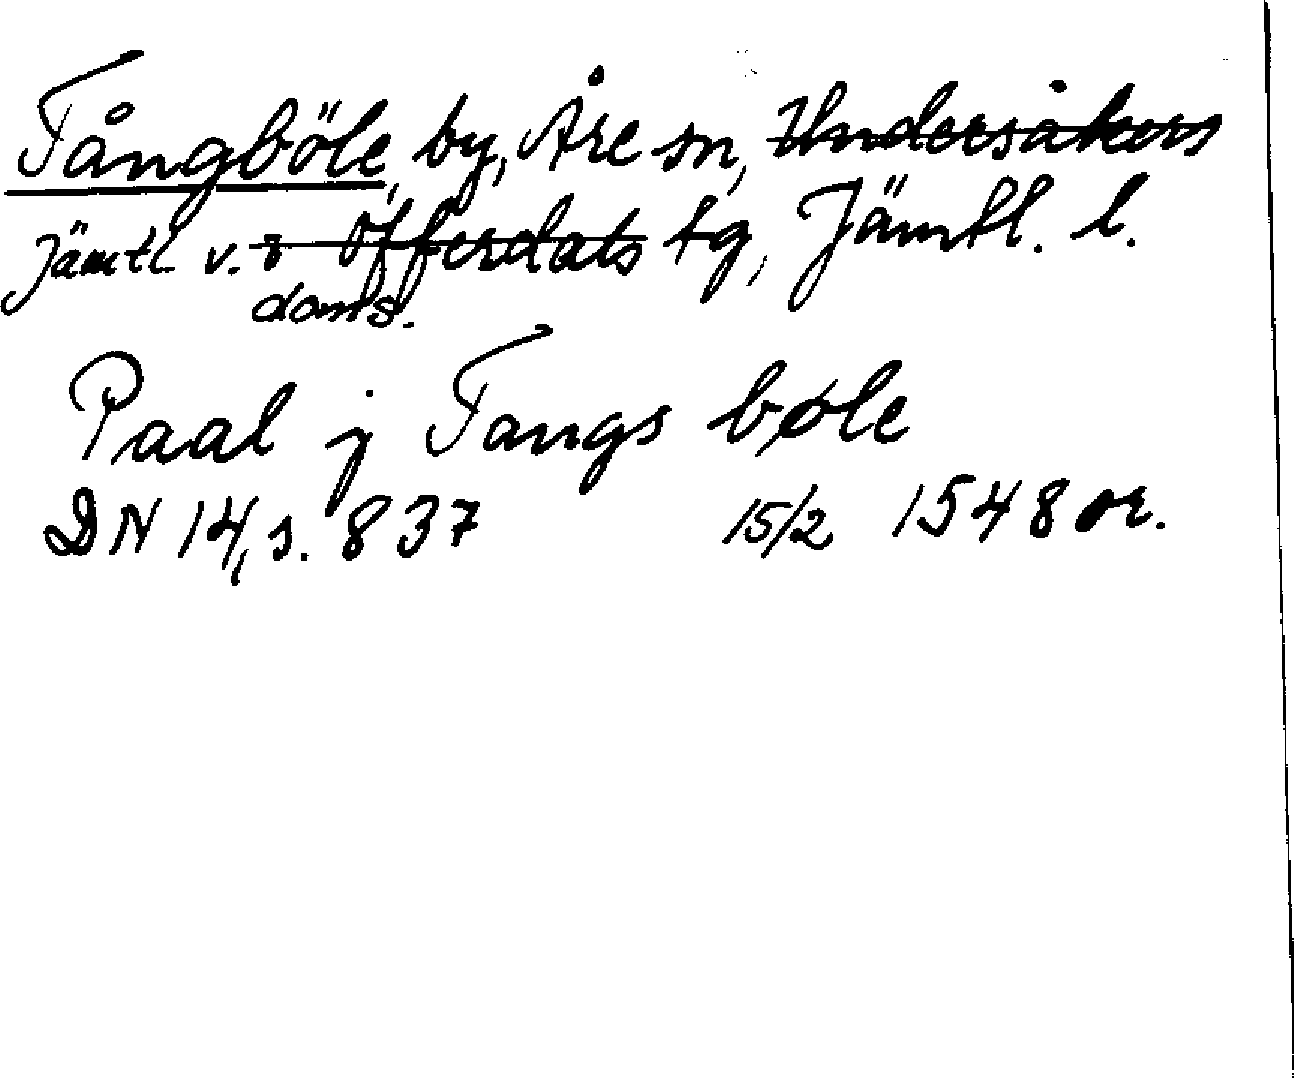 Fångböle, by, Åre sn, Undersåkers
Jämtl. v. o Offerdals tg, Jämtl. l.
doms.
Paal j Fangs bøle
DN 14, s. 837 15/2 1548 or.